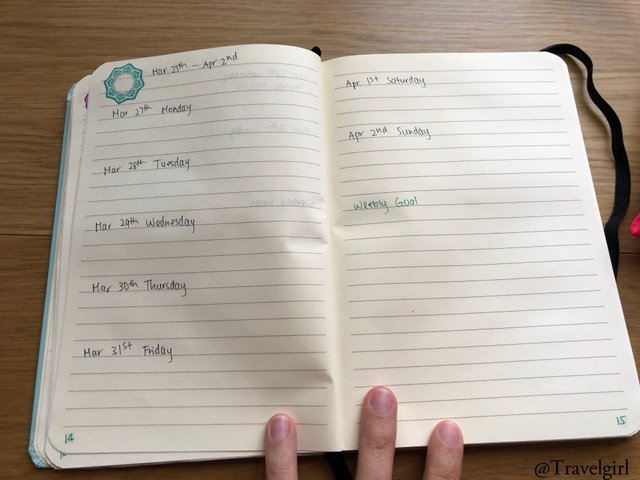 Mar 27th - Apr 2nd
Mar 27th Monday
Mar 28th Tuesday
Mar 29th Wednesday
Mar 30th Thursday
Mar 31st Friday
14
Apr 1st Saturday
Apr 2nd Sunday
Weekly Goal
15
@Travelgirl